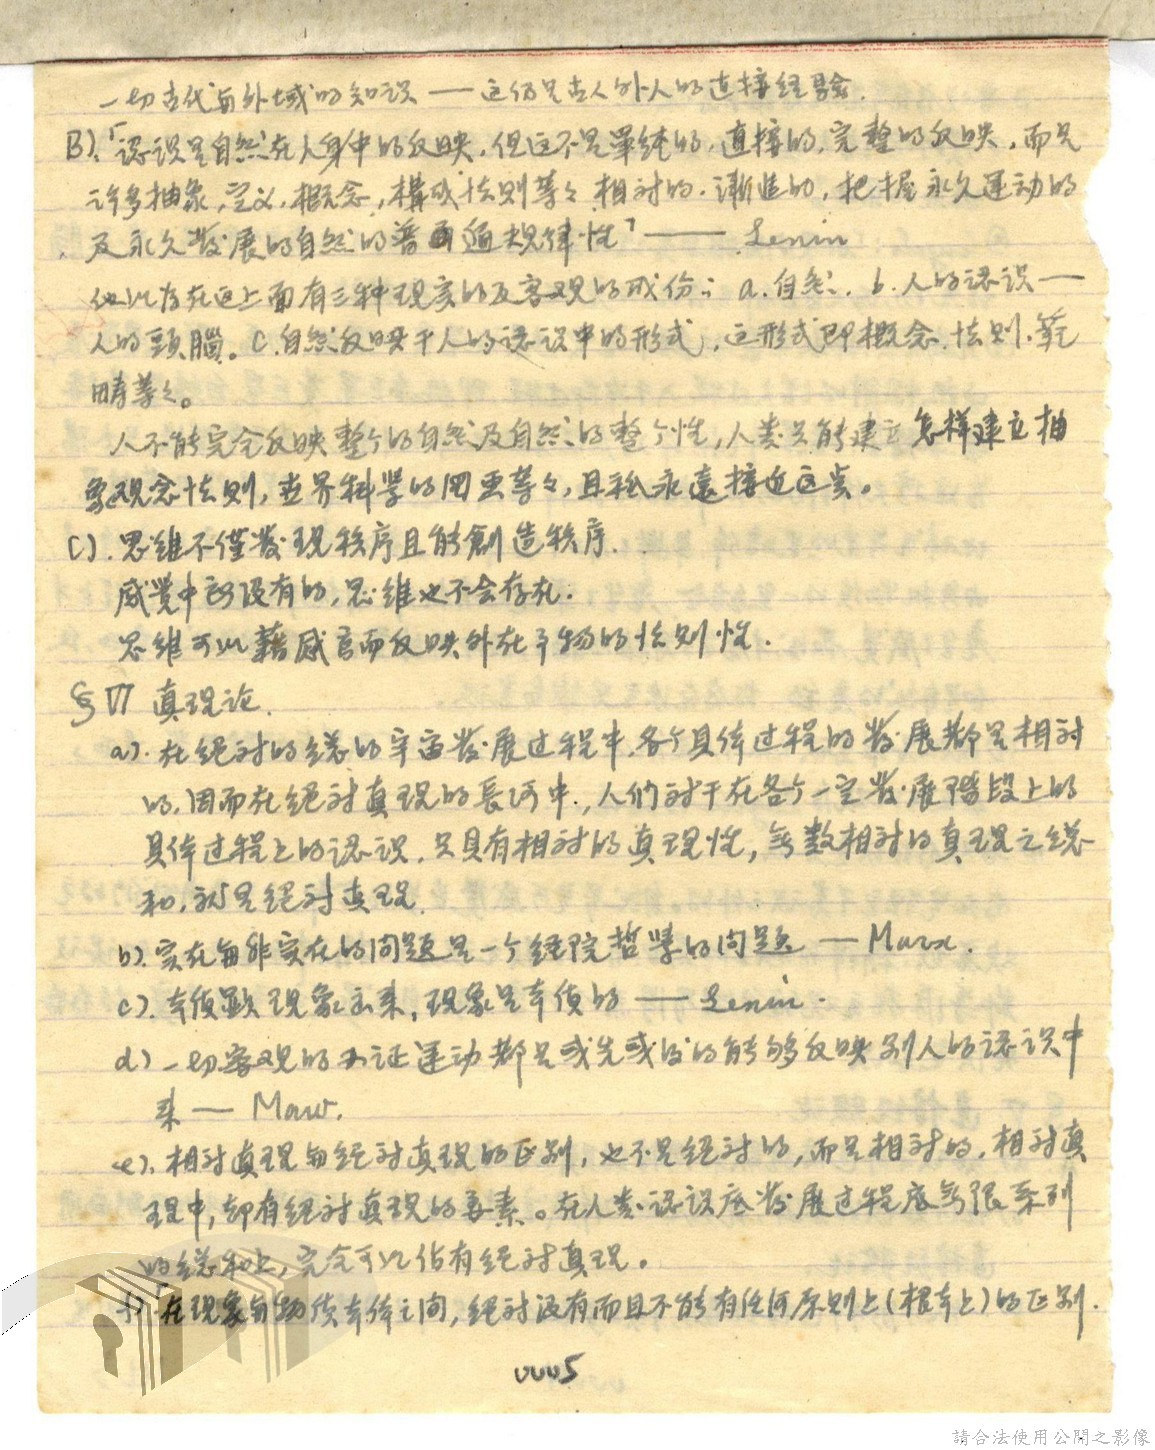 一切古代与外域的知识 — 这仍是古人外人的直接经验.
B).「认识是自然在人身中的反映,但这不是单纯的,直接的,完整的反映,而是
许多抽象,定义,概念,構成法则等々相对的.漸進的,把握永久运动的
及永久發展的自然的普遍规律性」—— Lenin
他以为在这上面有三种现实的及客观的成份; a.自然. b.人的認识—
人的頭腦。c.自然反映于人的認识中的形式,这形式即概念.法则.範
畴等々。
人不能完全反映整个的自然及自然的整个性,人类只能建立怎样建立抽
象观念法则,世界科学的图画等々,且能永遠接近这点。
C).思维不僅發现秩序且能創造秩序.
感觉中所没有的,思维也不会存在.
思维可以藉感官而反映外在于物的法则性.
§ VI 真理论.
a).在绝对的总的宇宙發展过程中,各个具体过程的發展都是相对
的,因而在绝对真理的長河中,人们对于在各个一定發展階段上的
具体过程上的認识,只具有相对的真理性,無数相对的真理之总
和,就是绝对真理.
b).实在与非实在的问题是一个经院哲学的问题 — Marx.
c).本质顯现象出来,现象是本质的 — Lenin.
d)一切客观的辩证运动都是或先或后的能够反映到人的認识中
来 — Mao.
e).相对真理与绝对真理的区别,也不是绝对的,而是相对的,相对真
理中,却有绝对真理的要素。在人类認识底發展过程底無限系列
的总和上,完全可以佔有绝对真理。
f)「在现象与物质本体之间,绝对没有而且不能有任何原则上(根本上)的区别.
0005
請合法使用公開之影像